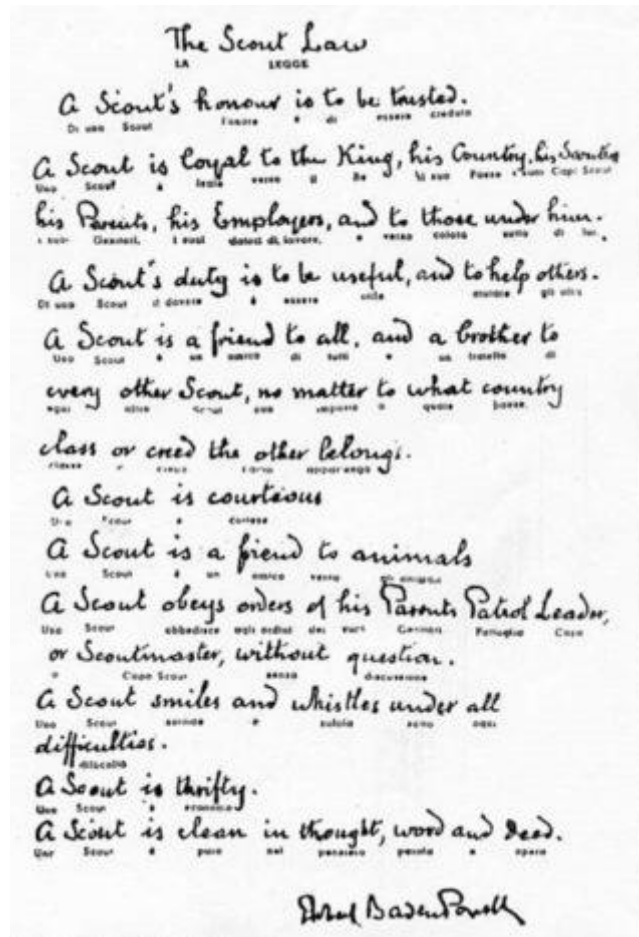 The Scout Law
LA LEGGE
A Scout's honour is to be trusted.
Di uno Scout l'onore è di essere creduto
A Scout is loyal to the King, his Country, his Scouters
Uno Scout è leale verso il Re il suo Paese i suoi Capi Scout
his Parents, his Employers, and to those under him.
i suoi Genitori, i suoi datori di lavoro, e verso coloro sotto di lui.
A Scout's duty is to be useful, and to help others.
Di uno Scout il dovere è essere utile aiutare gli altri
A Scout is a friend to all, and a brother to
Uno Scout è un amico di tutti e un fratello di
every other Scout, no matter to what country
ogni altro Scout non importa a quale paese,
class or creed the other belongs.
classe o l'altro appartenga
A Scout is courteous
Uno Scout è cortese
A Scout is a friend to animals
Uno Scout è un amico verso gli animali
A Scout obeys orders of his Parents Patrol Leader,
Uno Scout obbedisce agli ordini dei suoi Genitori Pattuglia Capo
or Scoutmaster, without question.
o Capo Scout senza discussione
A Scout smiles and whistles under all
Uno Scout sorride e zufola sotto ogni
difficulties.
difficoltà
A Scout is thrifty.
Uno Scout è economico
A Scout is clean in thought, word and deed.
Uno Scout è puro nel pensiero parola e opera
Baden Powell